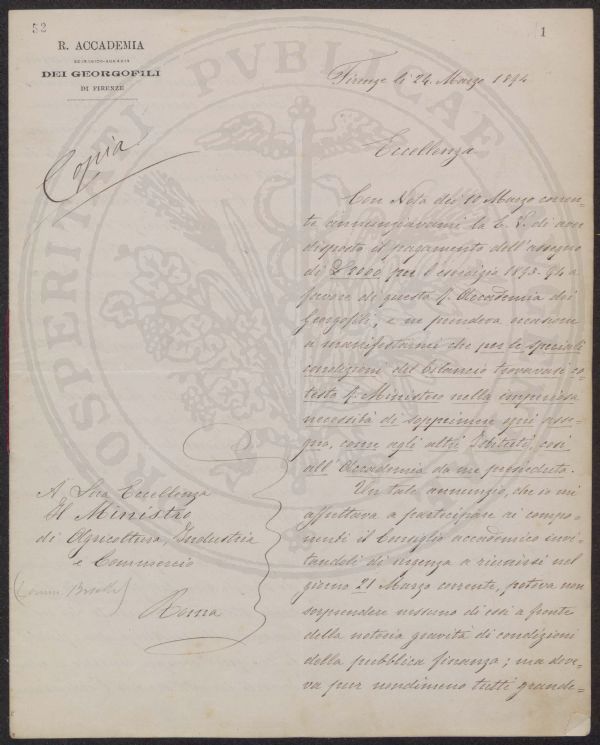 52
1
R. ACCADEMIA
ECONOMICO-AGRARIA
DEI GEORGOFILI
DI FIRENZE
Firenze li 24. Marzo 1894
Copia
Eccellenza
Con Nota dei 10 Marzo corren-
te annunziavami la E. V. di aver
disposto il pagamento dell'assegno
di per l'esercizio 1893-94 a
favore di questa R. Accademia dei
Georgofili, e ne prendeva occasione
a manifestarmi che per le speciali
condizioni del bilancio trovavasi co-
testo R. Ministero nella imperiosa
necessità di sopprimere ogni asse-
gno, come agli altri Istituti, così
all'Accademia da me preseduta.
Un tale annunzio, che io mi
affrettava a partecipare ai compo-
nenti il Consiglio accademico invi-
tandoli di urgenza a riunirsi nel
giorno 21 Marzo corrente, poteva non
sorprendere nessuno di essi a fronte
della notoria gravità di condizioni
della pubblica finanza; ma dove-
va pur nondimeno tutti grande-
A Sua Eccellenza
Il Ministro
di Agricoltura, Industria
e Commercio
Roma
PROSPERITATI PUBLICAE